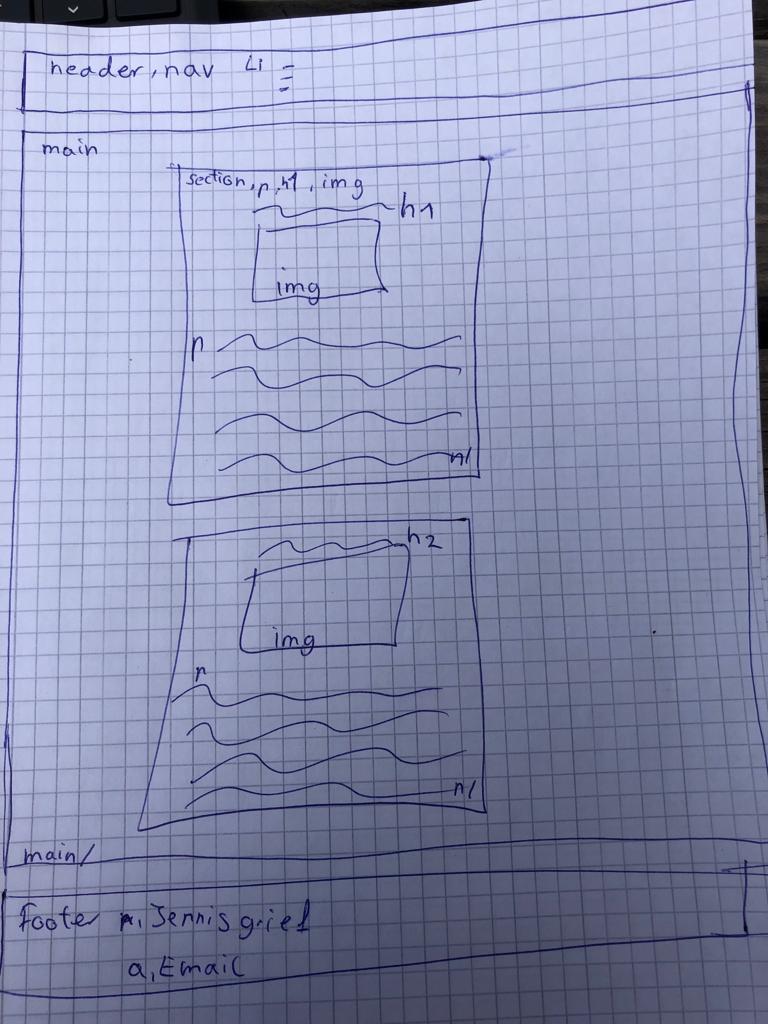 header, nav Li
main
section, p, h1, img
h1
img
p
p/
h2
img
p
p/
main/
Footer p, Jennis
a, Email